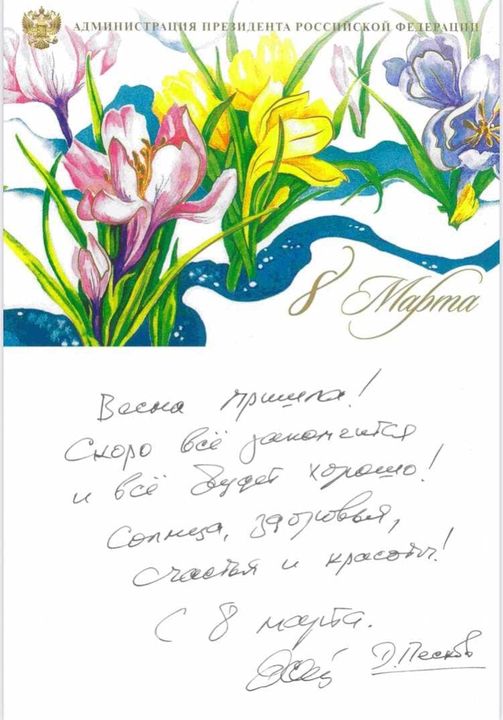 АДМИНИСТРАЦИЯ ПРЕЗИДЕНТА РОССИЙСКОЙ ФЕДЕРАЦИИ
8 Марта
Весна пришла!
Скоро всё закончится
и всё будет хорошо!
Солнца, здоровья,
счастья и красоты!
С 8 марта.
Д. Песков